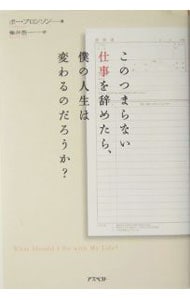 ポー・ブロンソン 著
このつまらない
仕事を辞めたら、
僕の人生は
変わるのだろうか?
What Should I Do with My Life?
アスペクト